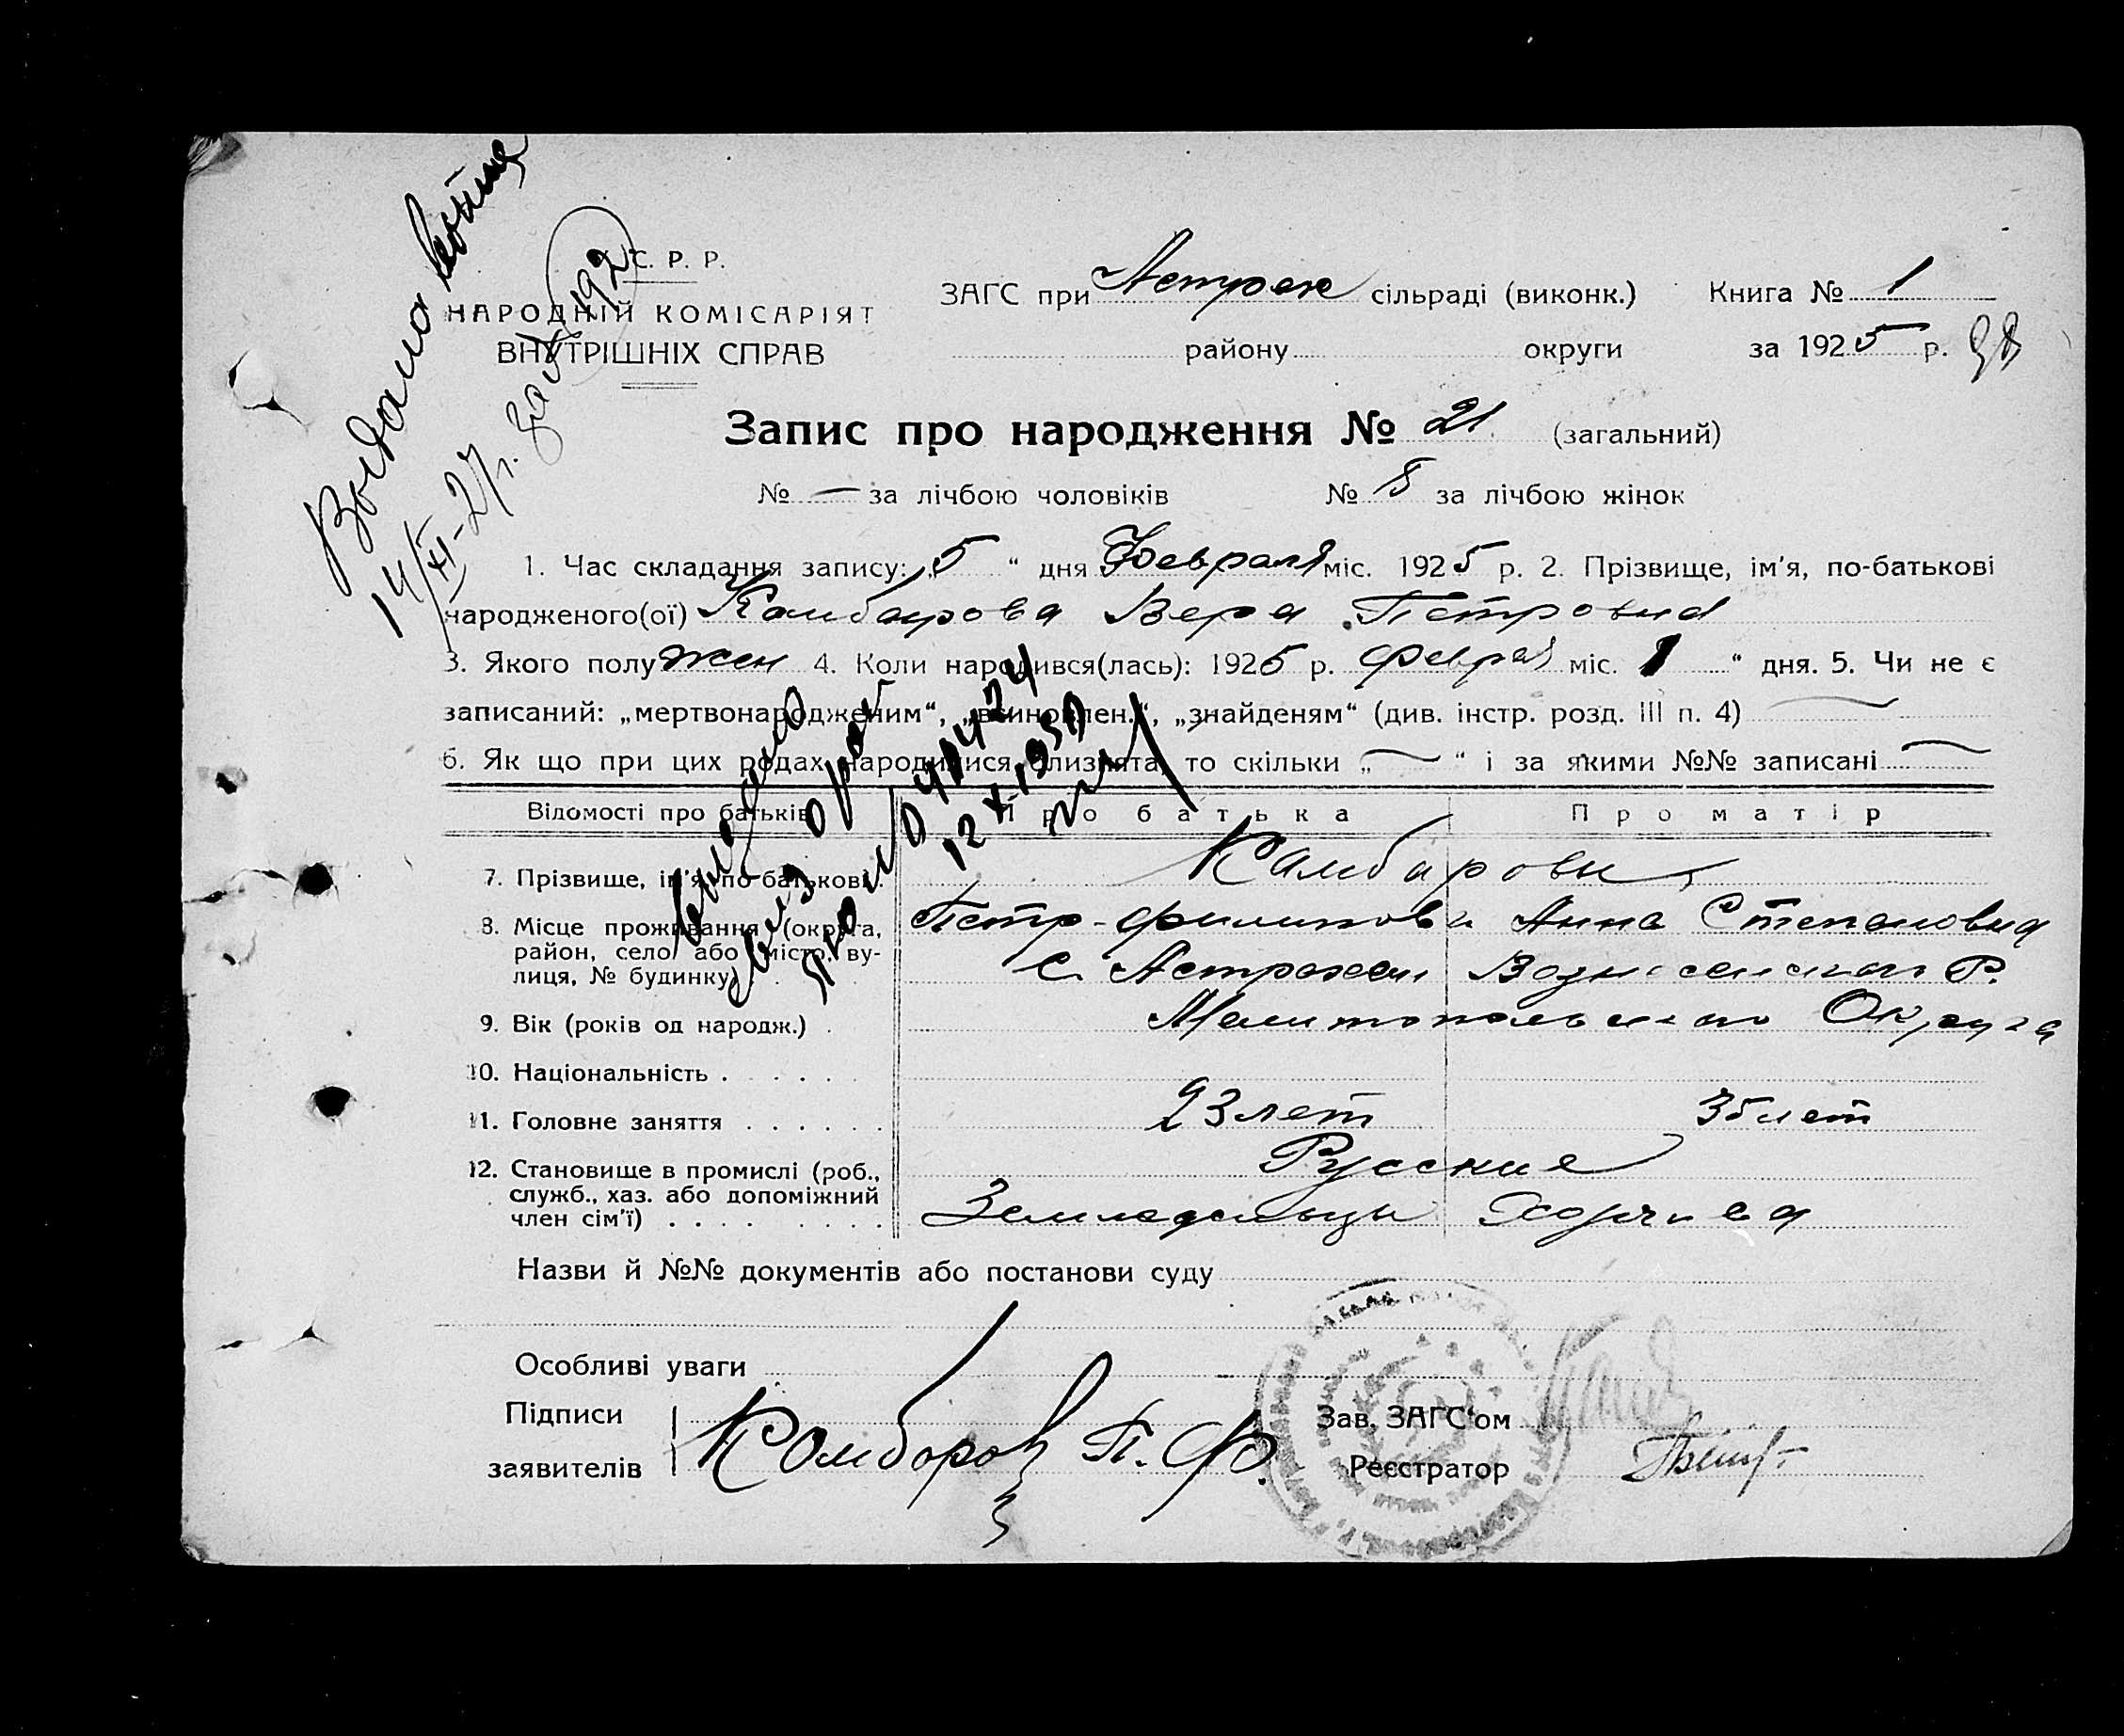 С. Р. Р.
НАРОДНІЙ КОМІСАРІЯТ
ВНУТРІШНІХ СПРАВ
ЗАГС при Астрах сільраді (виконк.) Книга № 1
району округи за 1925 р.
Запис про народження № 21 (загальний)
№ — за лічбою чоловіків № 8 за лічбою жінок
1. Час складання запису: „5“ дня Февраля міс. 1925 р. 2. Прізвище, ім'я, по-батькові
народженого(ої) Камбарова Вера Петровна
3. Якого полу жен 4. Коли народився(лась): 1925 р. Феврал міс. 1 “ дня. 5. Чи не є
записаний: „мертвонародженим“, „всиновлен.“, „знайденям“ (див. інстр. розд. III п. 4) —
6. Як що при цих родах народилися близнята, то скільки „—“ і за якими №№ записані —
Відомості про батьків Про батька Про матір
7. Прізвище, ім'я, по-батькові . Камбаровы
8. Місце проживання (округа, Петр Филипови Анна Степановна
район, село або місто, ву- С. Астрахан Вознесенского Р.
лиця, № будинку) . .
9. Вік (років од народж.) . Мелитопольского Округа
10. Національність . . . . .
11. Головне заняття . . . . . . 23 лет 35 лет
12. Становище в промислі (роб., Русские
служб., хаз. або допоміжний
член сім'ї) . . . . . . . . Земледельцы
Назви й №№ документів або постанови суду
Особливі уваги
Підписи Зав. ЗАГС'ом
заявителів Камбаров П. Ф. Реєстратор
Выдана
14/XI-27 г. за № 192
12 X 1950